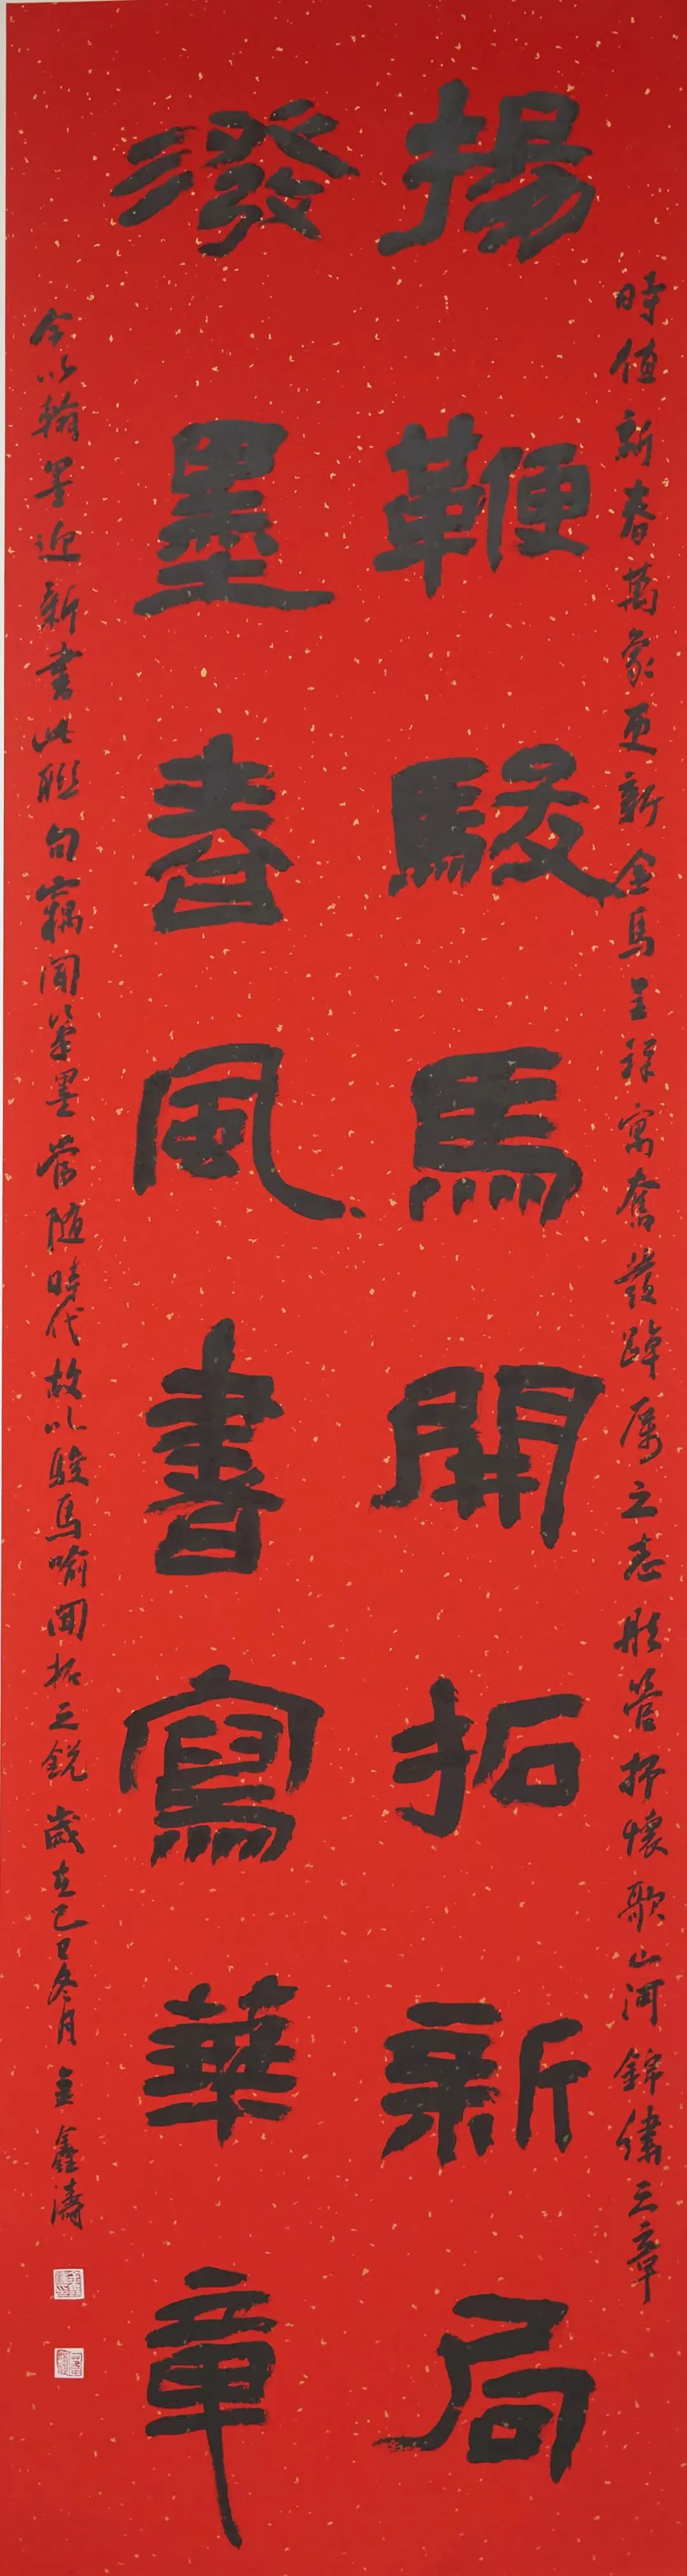 時值新春萬象更新金馬呈祥寓奮發踔厲之志彤管抒懷歌山河錦繡之章
揚鞭駿馬開拓新局
潑墨春風書寫華章
今以翰墨迎新書此聯句竊聞筆墨當隨時代故以駿馬喻開拓之銳歲在乙巳冬月鑫濤